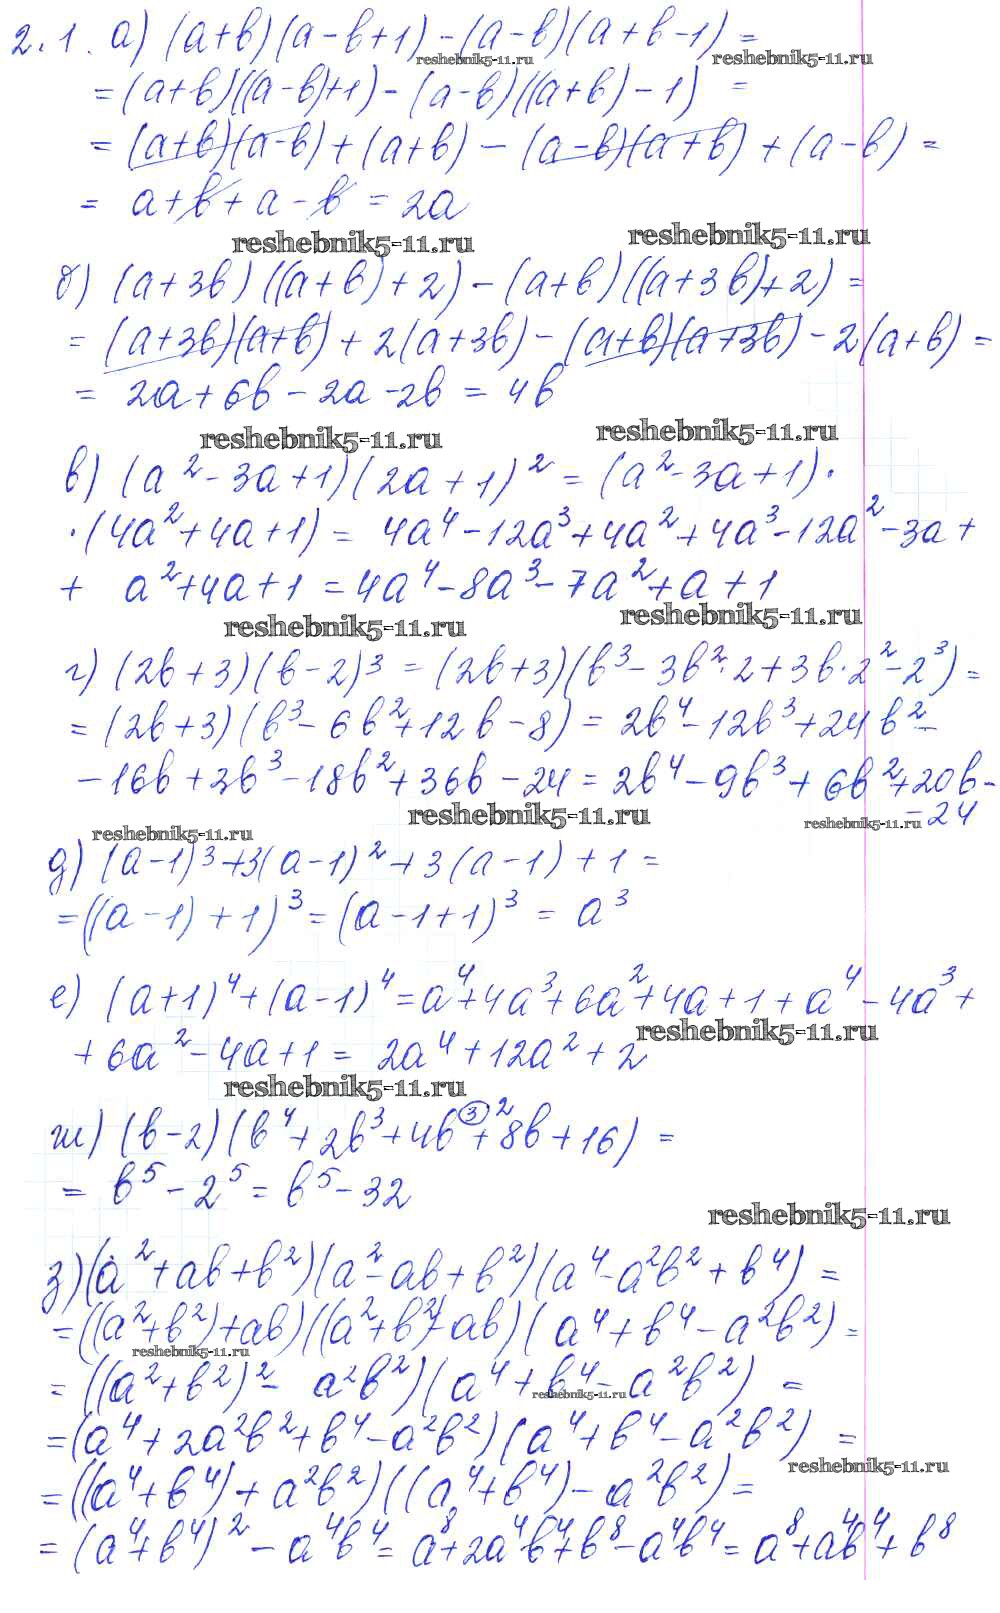 2.1. а) (a+b)(a-b+1)-(a-b)(a+b-1)=
reshebnik5-11.ru reshebnik5-11.ru
=(a+b)((a-b)+1)-(a-b)((a+b)-1) =
= (a+b)(a-b)+(a+b)-(a-b)(a+b)+(a-b) =
= a+b+a-b = 2a
reshebnik5-11.ru reshebnik5-11.ru
б) (a+3b)((a+b)+2)-(a+b)((a+3b)+2) =
= (a+3b)(a+b)+2(a+3b)-(a+b)(a+3b)-2(a+b) =
= 2a+6b-2a-2b = 4b
reshebnik5-11.ru reshebnik5-11.ru
в) (a²-3a+1)(2a+1)² = (a²-3a+1)·
·(4a²+4a+1) = 4a⁴-12a³+4a²+4a³-12a²-3a+
+ a²+4a+1 = 4a⁴-8a³-7a²+a+1
reshebnik5-11.ru reshebnik5-11.ru
г) (2b+3)(b-2)³ = (2b+3)(b³-3b²·2+3b·2²-2³) =
= (2b+3)(b³-6b²+12b-8) = 2b⁴-12b³+24b²-
-16b+3b³-18b²+36b-24 = 2b⁴-9b³+6b²+20b-
-24
reshebnik5-11.ru reshebnik5-11.ru reshebnik5-11.ru
д) (a-1)³+3(a-1)²+3(a-1)+1 =
=((a-1)+1)³ = (a-1+1)³ = a³
е) (a+1)⁴+(a-1)⁴ = a⁴+4a³+6a²+4a+1+a⁴-4a³+
reshebnik5-11.ru
+6a²-4a+1 = 2a⁴+12a²+2
reshebnik5-11.ru
ж) (b-2)(b⁴+2b³+4b³²+8b+16) =
= b⁵-2⁵ = b⁵-32
reshebnik5-11.ru
з) (a²+ab+b²)(a²-ab+b²)(a⁴-a²b²+b⁴) =
=((a²+b²)+ab)((a²+b²)-ab)(a⁴+b⁴-a²b²) =
reshebnik5-11.ru
= ((a²+b²)²- a²b²)(a⁴+b⁴-a²b²) =
reshebnik5-11.ru
=(a⁴+2a²b²+b⁴-a²b²)(a⁴+b⁴-a²b²) =
reshebnik5-11.ru
=((a⁴+b⁴)+a²b²)((a⁴+b⁴)-a²b²) =
= (a⁴+b⁴)² - a⁴b⁴ = a⁸+2a⁴b⁴+b⁸-a⁴b⁴ = a⁸+a⁴b⁴+b⁸